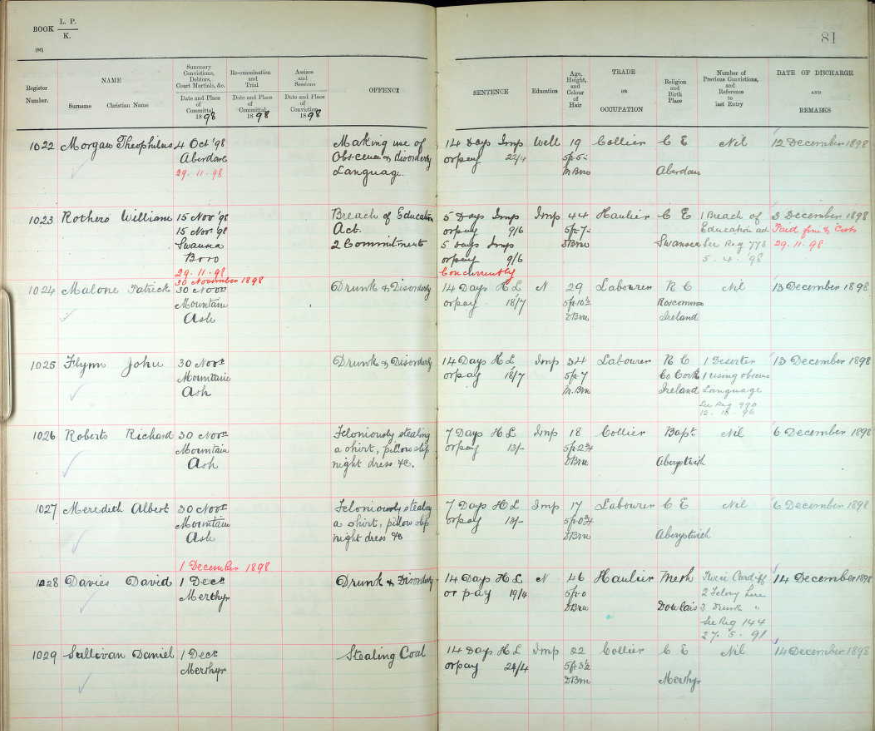 BOOK L. P.
K.
81
Register Number.
NAME
Surname Christian Name
Summary Convictions, Debtors, Court Martials, &c.
Date and Place of Committal 1898
Re-examination and Trial
Date and Place of Committal 1898
Assizes and Sessions
Date and Place of Conviction 1898
OFFENCE
SENTENCE
Education
Age, Height, and Colour of Hair
TRADE OR OCCUPATION
Religion and Birth Place
Number of Previous Convictions, and Reference to last Entry
DATE OF DISCHARGE AND REMARKS
1022 Morgan Theophilus 4 Oct '98 Making use of 14 Days Imp Well 19 Collier C E Nil 12 December 1898
Aberdare Obscene & Disorderly or pay
29.11.98 Language Aberdare
1023 Rothers William 15 Nov '98 Breach of Education 5 Days Imp Imp 44 Haulier C E 1 Breach of 3 December 1898
15 Nov '98 Act. or pay 9/6 5ft 7 Education act Paid fine & Costs
Swansea 2 Commitments 5 Days Imp Swansea See Reg 29.11.98
Boro or pay 9/6
29.11.98 Concurrently
30 November 1898
1024 Malone Patrick 30 Nov Drunk & Disorderly 14 Days H L N 29 Labourer R C Nil 13 December 1898
Mountain or pay 18/7 Roscommon
Ash Ireland
1025 Flynn John 30 Nov Drunk & Disorderly 14 Days H L Imp Labourer R C 13 December 1898
Mountain or pay 18/7 5ft 7 Co Cork 1 using obscene
Ash Ireland Language
See Reg
1026 Roberts Richard 30 Nov Feloniously stealing 7 Days H L Imp 18 Collier Bapt Nil 6 December 1898
Mountain a shirt, pillow slip or pay
Ash night dress &c. Aberystwith
1027 Meredith Albert 30 Nov Feloniously stealing 7 Days H L Imp 17 Labourer C E Nil 6 December 1898
Mountain a shirt, pillow slip or pay
Ash night dress &c Aberystwith
1 December 1898
1028 Davies David 1 Dec Drunk & Disorderly 14 Days H L N 46 Haulier Meth Cardiff 14 December 1898
Merthyr or pay 19/4 2 Felony
Dowlais 3 Drunk "
See Reg 144
27.5.91
1029 Sullivan Daniel 1 Dec Stealing Coal 14 Days H L Imp 22 Collier C E Nil 14 December 1898
Merthyr or pay Merthyr